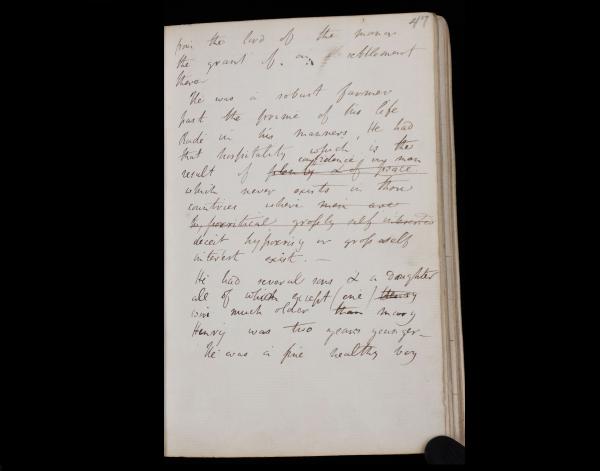 47
from the lord of the manor
the grant of an settlement
there
He was a robust farmer
past the prome of his life
Rude in his manners, He had
that hospitality which is the
confidence in man
result of plenty & of peace
which never exists in those
countries where men are
hypocritical grossly self interested
deceit hypocrisy or gross self
interest exist. —
He had several sons & a daughter
all of which except (one) Henry
were much older than mary
Henry was two years younger —
He was a fine healthy boy